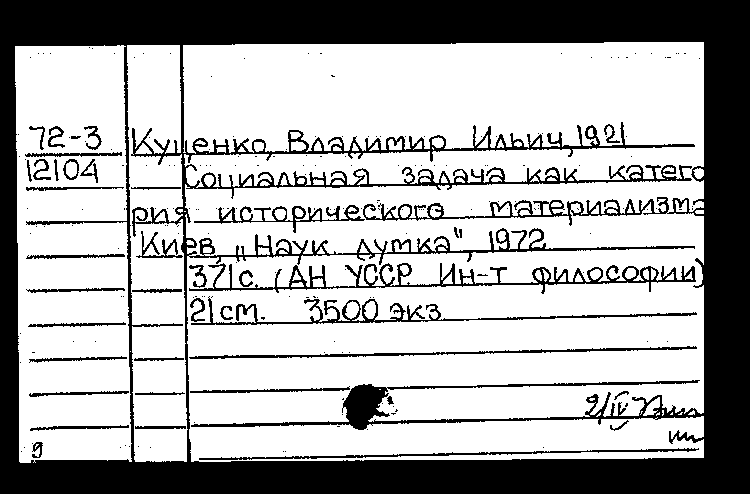 72-3 Куценко, Владимир Ильич, 1921
12104 Социальная задача как катего
рия исторического материализма
Киев, „Наук. думка", 1972
371с. (АН УССР. Ин-т философии)
21 см. 3500 экз
2/IV
9